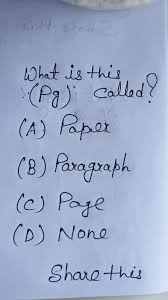 What is this
(Pg) called?
(A) Paper
(B) Paragraph
(C) Page
(D) None
Share this